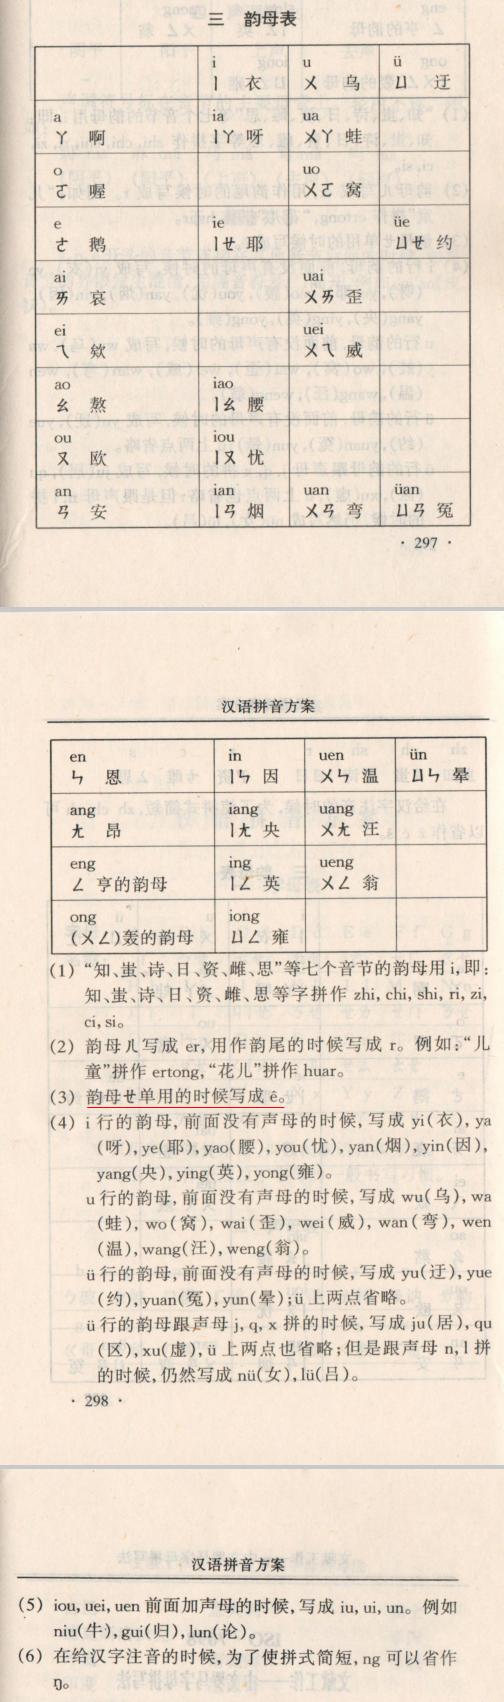 三 韵母表
i u ü
ㄧ 衣 ㄨ 乌 ㄩ 迂
a ia ua
ㄚ 啊 ㄧㄚ 呀 ㄨㄚ 蛙
o uo
ㄛ 喔 ㄨㄛ 窝
e ie üe
ㄜ 鹅 ㄧㄝ 耶 ㄩㄝ 约
ai uai
ㄞ 哀 ㄨㄞ 歪
ei uei
ㄟ 欸 ㄨㄟ 威
ao iao
ㄠ 熬 ㄧㄠ 腰
ou iou
ㄡ 欧 ㄧㄡ 忧
an ian uan üan
ㄢ 安 ㄧㄢ 烟 ㄨㄢ 弯 ㄩㄢ 冤
· 297 ·
汉语拼音方案
en in uen ün
ㄣ 恩 ㄧㄣ 因 ㄨㄣ 温 ㄩㄣ 晕
ang iang uang
ㄤ 昂 ㄧㄤ 央 ㄨㄤ 汪
eng ing ueng
ㄥ 亨的韵母 ㄧㄥ 英 ㄨㄥ 翁
ong iong
(ㄨㄥ)轰的韵母 ㄩㄥ 雍
(1) “知、蚩、诗、日、资、雌、思”等七个音节的韵母用 i,即:
知、蚩、诗、日、资、雌、思等字拼作 zhi, chi, shi, ri, zi,
ci, si。
(2) 韵母ㄦ写成 er,用作韵尾的时候写成 r。例如:“儿
童”拼作 ertong,“花儿”拼作 huar。
(3) 韵母ㄝ单用的时候写成 ê。
(4) i 行的韵母,前面没有声母的时候,写成 yi(衣), ya
(呀), ye(耶), yao(腰), you(忧), yan(烟), yin(因),
yang(央), ying(英), yong(雍)。
u 行的韵母,前面没有声母的时候,写成 wu(乌), wa
(蛙), wo(窝), wai(歪), wei(威), wan(弯), wen
(温), wang(汪), weng(翁)。
ü 行的韵母,前面没有声母的时候,写成 yu(迂), yue
(约), yuan(冤), yun(晕);ü 上两点省略。
ü 行的韵母跟声母 j, q, x 拼的时候,写成 ju(居), qu
(区), xu(虚), ü 上两点也省略;但是跟声母 n, l 拼
的时候,仍然写成 nü(女), lü(吕)。
· 298 ·
汉语拼音方案
(5) iou, uei, uen 前面加声母的时候,写成 iu, ui, un。例如
niu(牛), gui(归), lun(论)。
(6) 在给汉字注音的时候,为了使拼式简短, ng 可以省作
ŋ。